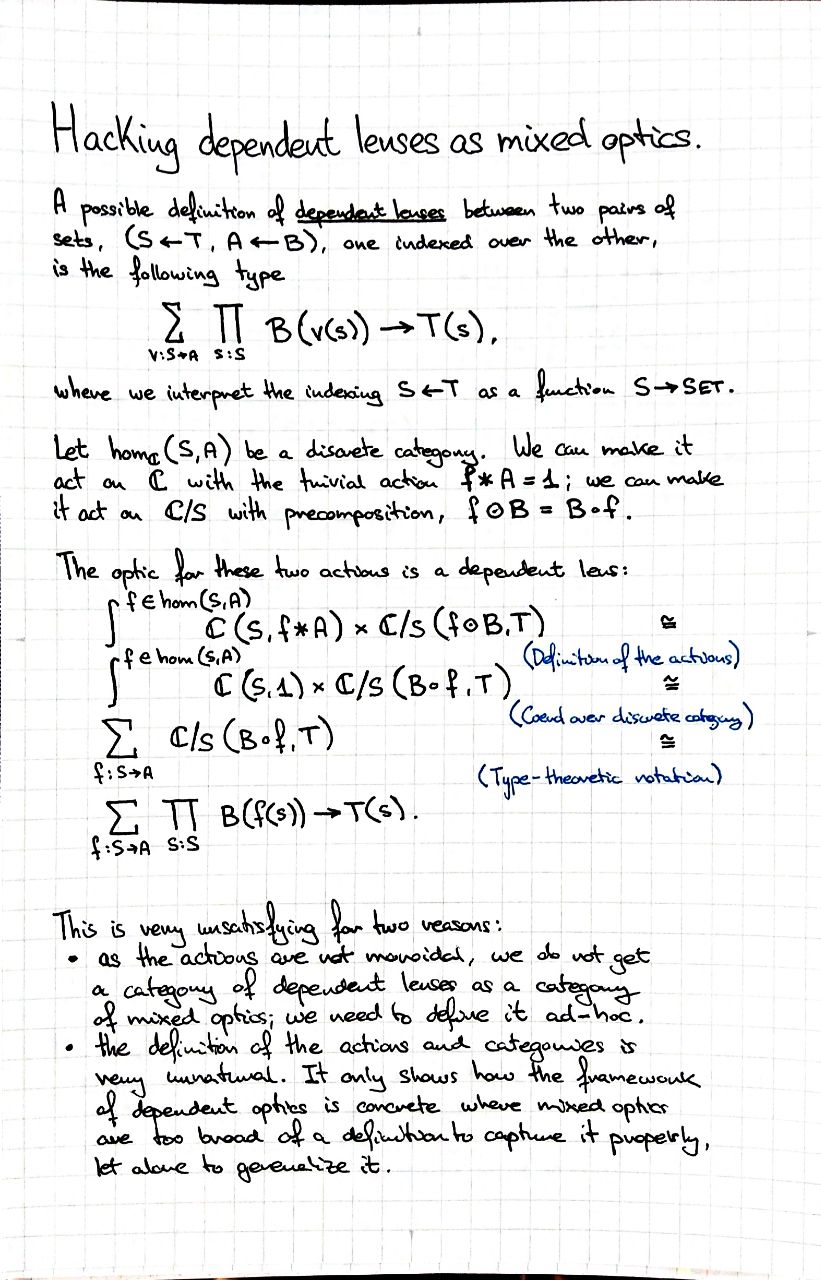 Hacking dependent lenses as mixed optics.
A possible definition of dependent lenses between two pairs of
sets, (S←T, A←B), one indexed over the other,
is the following type
∑ ∏ B(v(s)) → T(s),
v:S→A s:S
where we interpret the indexing S←T as a function S→SET.
Let hom_ℂ(S,A) be a discrete category. We can make it
act on ℂ with the trivial action f*A = 1; we can make
it act on ℂ/S with precomposition, f⊙B = B∘f.
The optic for these two actions is a dependent lens:
∫^{f∈hom(S,A)} ℂ(S,f*A) × ℂ/S(f⊙B,T) ≅
(Definition of the actions)
∫^{f∈hom(S,A)} ℂ(S,1) × ℂ/S(B∘f,T) ≅
(Coend over discrete category)
∑ ℂ/S(B∘f,T) ≅
f:S→A
(Type-theoretic notation)
∑ ∏ B(f(s)) → T(s).
f:S→A s:S
This is very unsatisfying for two reasons:
• as the actions are not monoidal, we do not get
a category of dependent lenses as a category
of mixed optics; we need to define it ad-hoc.
• the definition of the actions and categories is
very unnatural. It only shows how the framework
of dependent optics is concrete where mixed optics
are too broad of a definition to capture it properly,
let alone to generalize it.